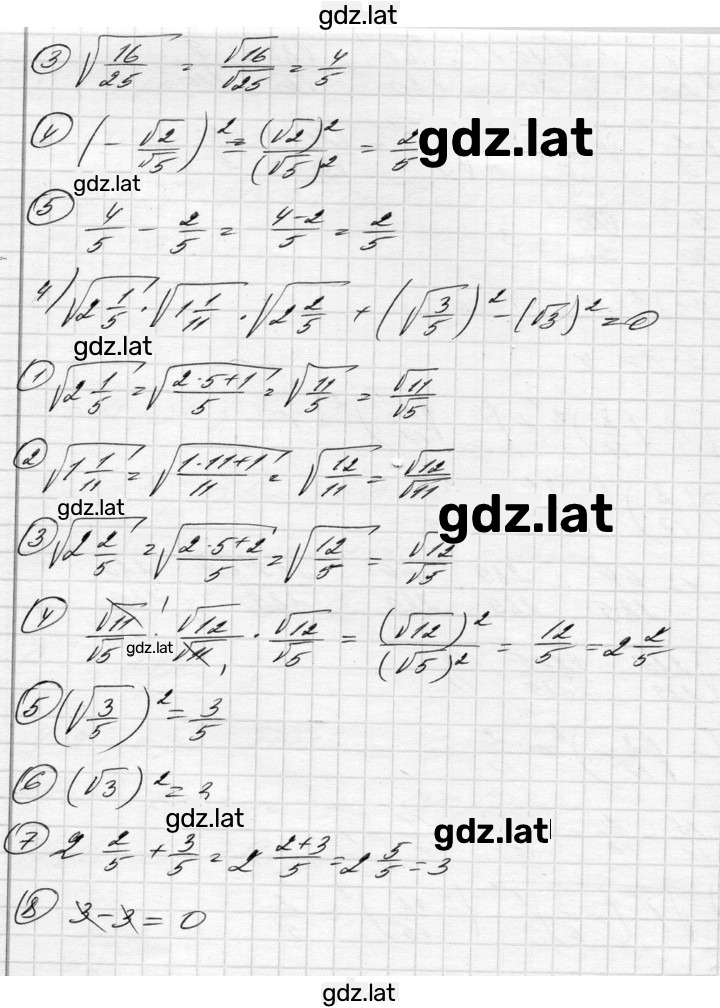 gdz.lat
③ √(16/25) = √16/√25 = 4/5
④ (- √2/√5)² = (√2)²/(√5)² = 2/5
gdz.lat
gdz.lat
⑤ 4/5 - 2/5 = (4-2)/5 = 2/5
4) √(2 1/5) · √(1 1/11) · √(2 2/5) + (√(3/5))² - (√3)² = 0
gdz.lat
① √(2 1/5) = √((2·5+1)/5) = √(11/5) = √11/√5
② √(1 1/11) = √((1·11+1)/11) = √(12/11) = √12/√11
gdz.lat
gdz.lat
③ √(2 2/5) = √((2·5+2)/5) = √(12/5) = √12/√5
④ √11/√5 · √12/√11 · √12/√5 = (√12)²/(√5)² = 12/5 = 2 2/5
gdz.lat
⑤ (√(3/5))² = 3/5
⑥ (√3)² = 3
gdz.lat
gdz.lat
⑦ 2 2/5 + 3/5 = 2 (2+3)/5 = 2 5/5 = 3
⑧ 3 - 3 = 0
gdz.lat